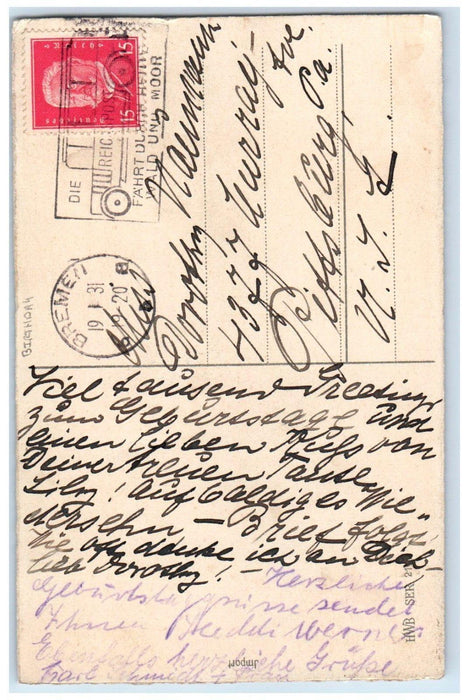 15 15
Deutsches
Reich
DIE
REICHSPOST
FÄHRT DURCH HEIDE
WALD UND MOOR
BREMEN
19 1 31
20
BIRTHDAY
Miss
Dorothy Naumann
4377 Murray Ave.
Pittsburg, Pa.
U. S.
Viel tausend Greetings
zum Geburtstage und
einen lieben Kuss von
Deiner treuen Tante
Lily! Auf baldiges Wie=
dersehn — Brief folgt
Wie oft denke ich an Dich
liebe Dorothy!
Herzliche
Geburtstagsgrüsse sendet
Ihnen Heddi Werner
Ebenfalls herzliche Grüße
Carl Schmidt & Frau
Import
HWB SER 21